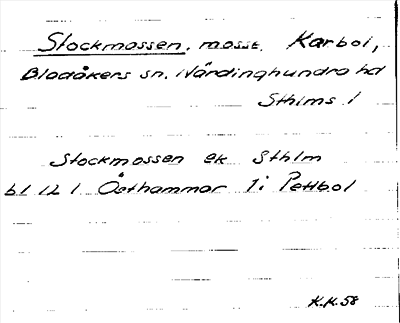 Stockmossen, mosse, Karbol,
Bladåkers sn. Närdinghundra hd
Sthlms l
Stockmossen ek Sthlm
bl 12 l Östhammar 1: Pettbol
K.K. 58